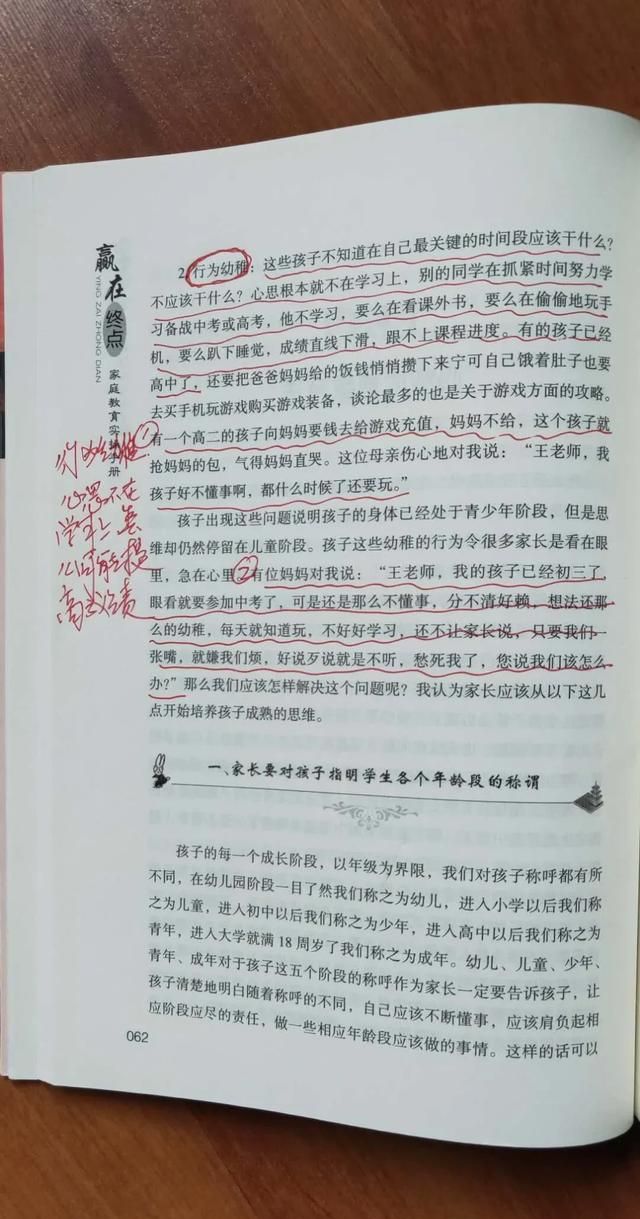 赢在终点
YING ZAI ZHONG DIAN
家庭教育实
册
2.行为幼稚：这些孩子不知道在自己最关键的时间段应该干什么？
不应该干什么？心思根本就不在学习上，别的同学在抓紧时间努力学
习备战中考或高考，他不学习，要么在看课外书，要么在偷偷地玩手
机，要么趴下睡觉，成绩直线下滑，跟不上课程进度。有的孩子已经
高中了，还要把爸爸妈妈给的饭钱悄悄攒下来宁可自己饿着肚子也要
去买手机玩游戏购买游戏装备，谈论最多的也是关于游戏方面的攻略。
有一个高二的孩子向妈妈要钱去给游戏充值，妈妈不给，这个孩子就
抢妈妈的包，气得妈妈直哭。这位母亲伤心地对我说：“王老师，我
孩子好不懂事啊，都什么时候了还要玩。”
孩子出现这些问题说明孩子的身体已经处于青少年阶段，但是思
维却仍然停留在儿童阶段。孩子这些幼稚的行为令很多家长是看在眼
里，急在心里②有位妈妈对我说：“王老师，我的孩子已经初三了，
眼看就要参加中考了，可是还是那么不懂事，分不清好赖，想法还那
么的幼稚，每天就知道玩，不好好学习，还不让家长说，只要我们一
张嘴，就嫌我们烦，好说歹说就是不听，愁死我了，您说我们该怎么
办？”那么我们应该怎样解决这个问题呢？我认为家长应该从以下这几
点开始培养孩子成熟的思维。
①
心思不在
学习上
高
一、家长要对孩子指明学生各个年龄段的称谓
孩子的每一个成长阶段，以年级为界限，我们对孩子称呼都有所
不同，在幼儿园阶段一目了然我们称之为幼儿，进入小学以后我们称
之为儿童，进入初中以后我们称之为少年，进入高中以后我们称之为
青年，进入大学就满 18 周岁了我们称之为成年。幼儿、儿童、少年、
青年、成年对于孩子这五个阶段的称呼作为家长一定要告诉孩子，让
孩子清楚地明白随着称呼的不同，自己应该不断懂事，应该肩负起相
应阶段应尽的责任，做一些相应年龄段应该做的事情。这样的话可以
062